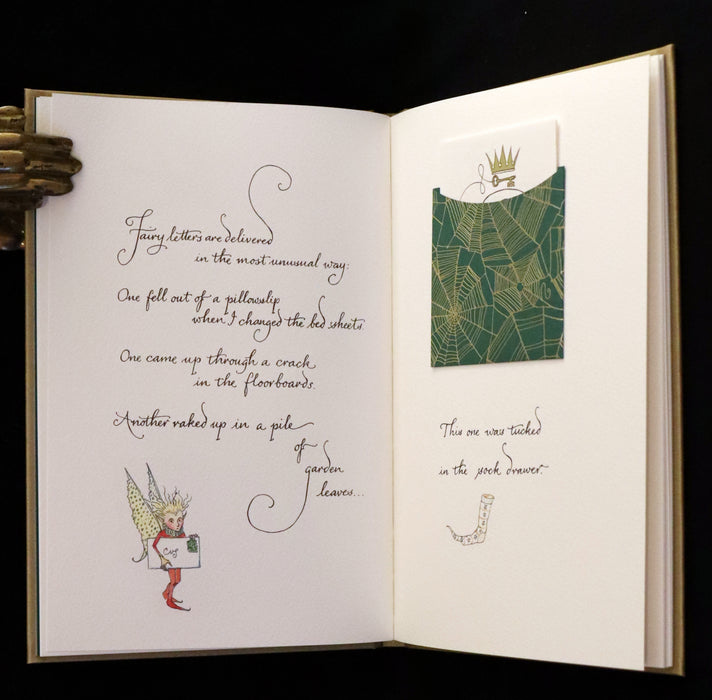 Fairy letters are delivered
in the most unusual way:
One fell out of a pillowslip
when I changed the bed sheets.
One came up through a crack
in the floorboards.
Another raked up in a pile
of
garden
leaves...
This one was tucked
in the sock drawer.